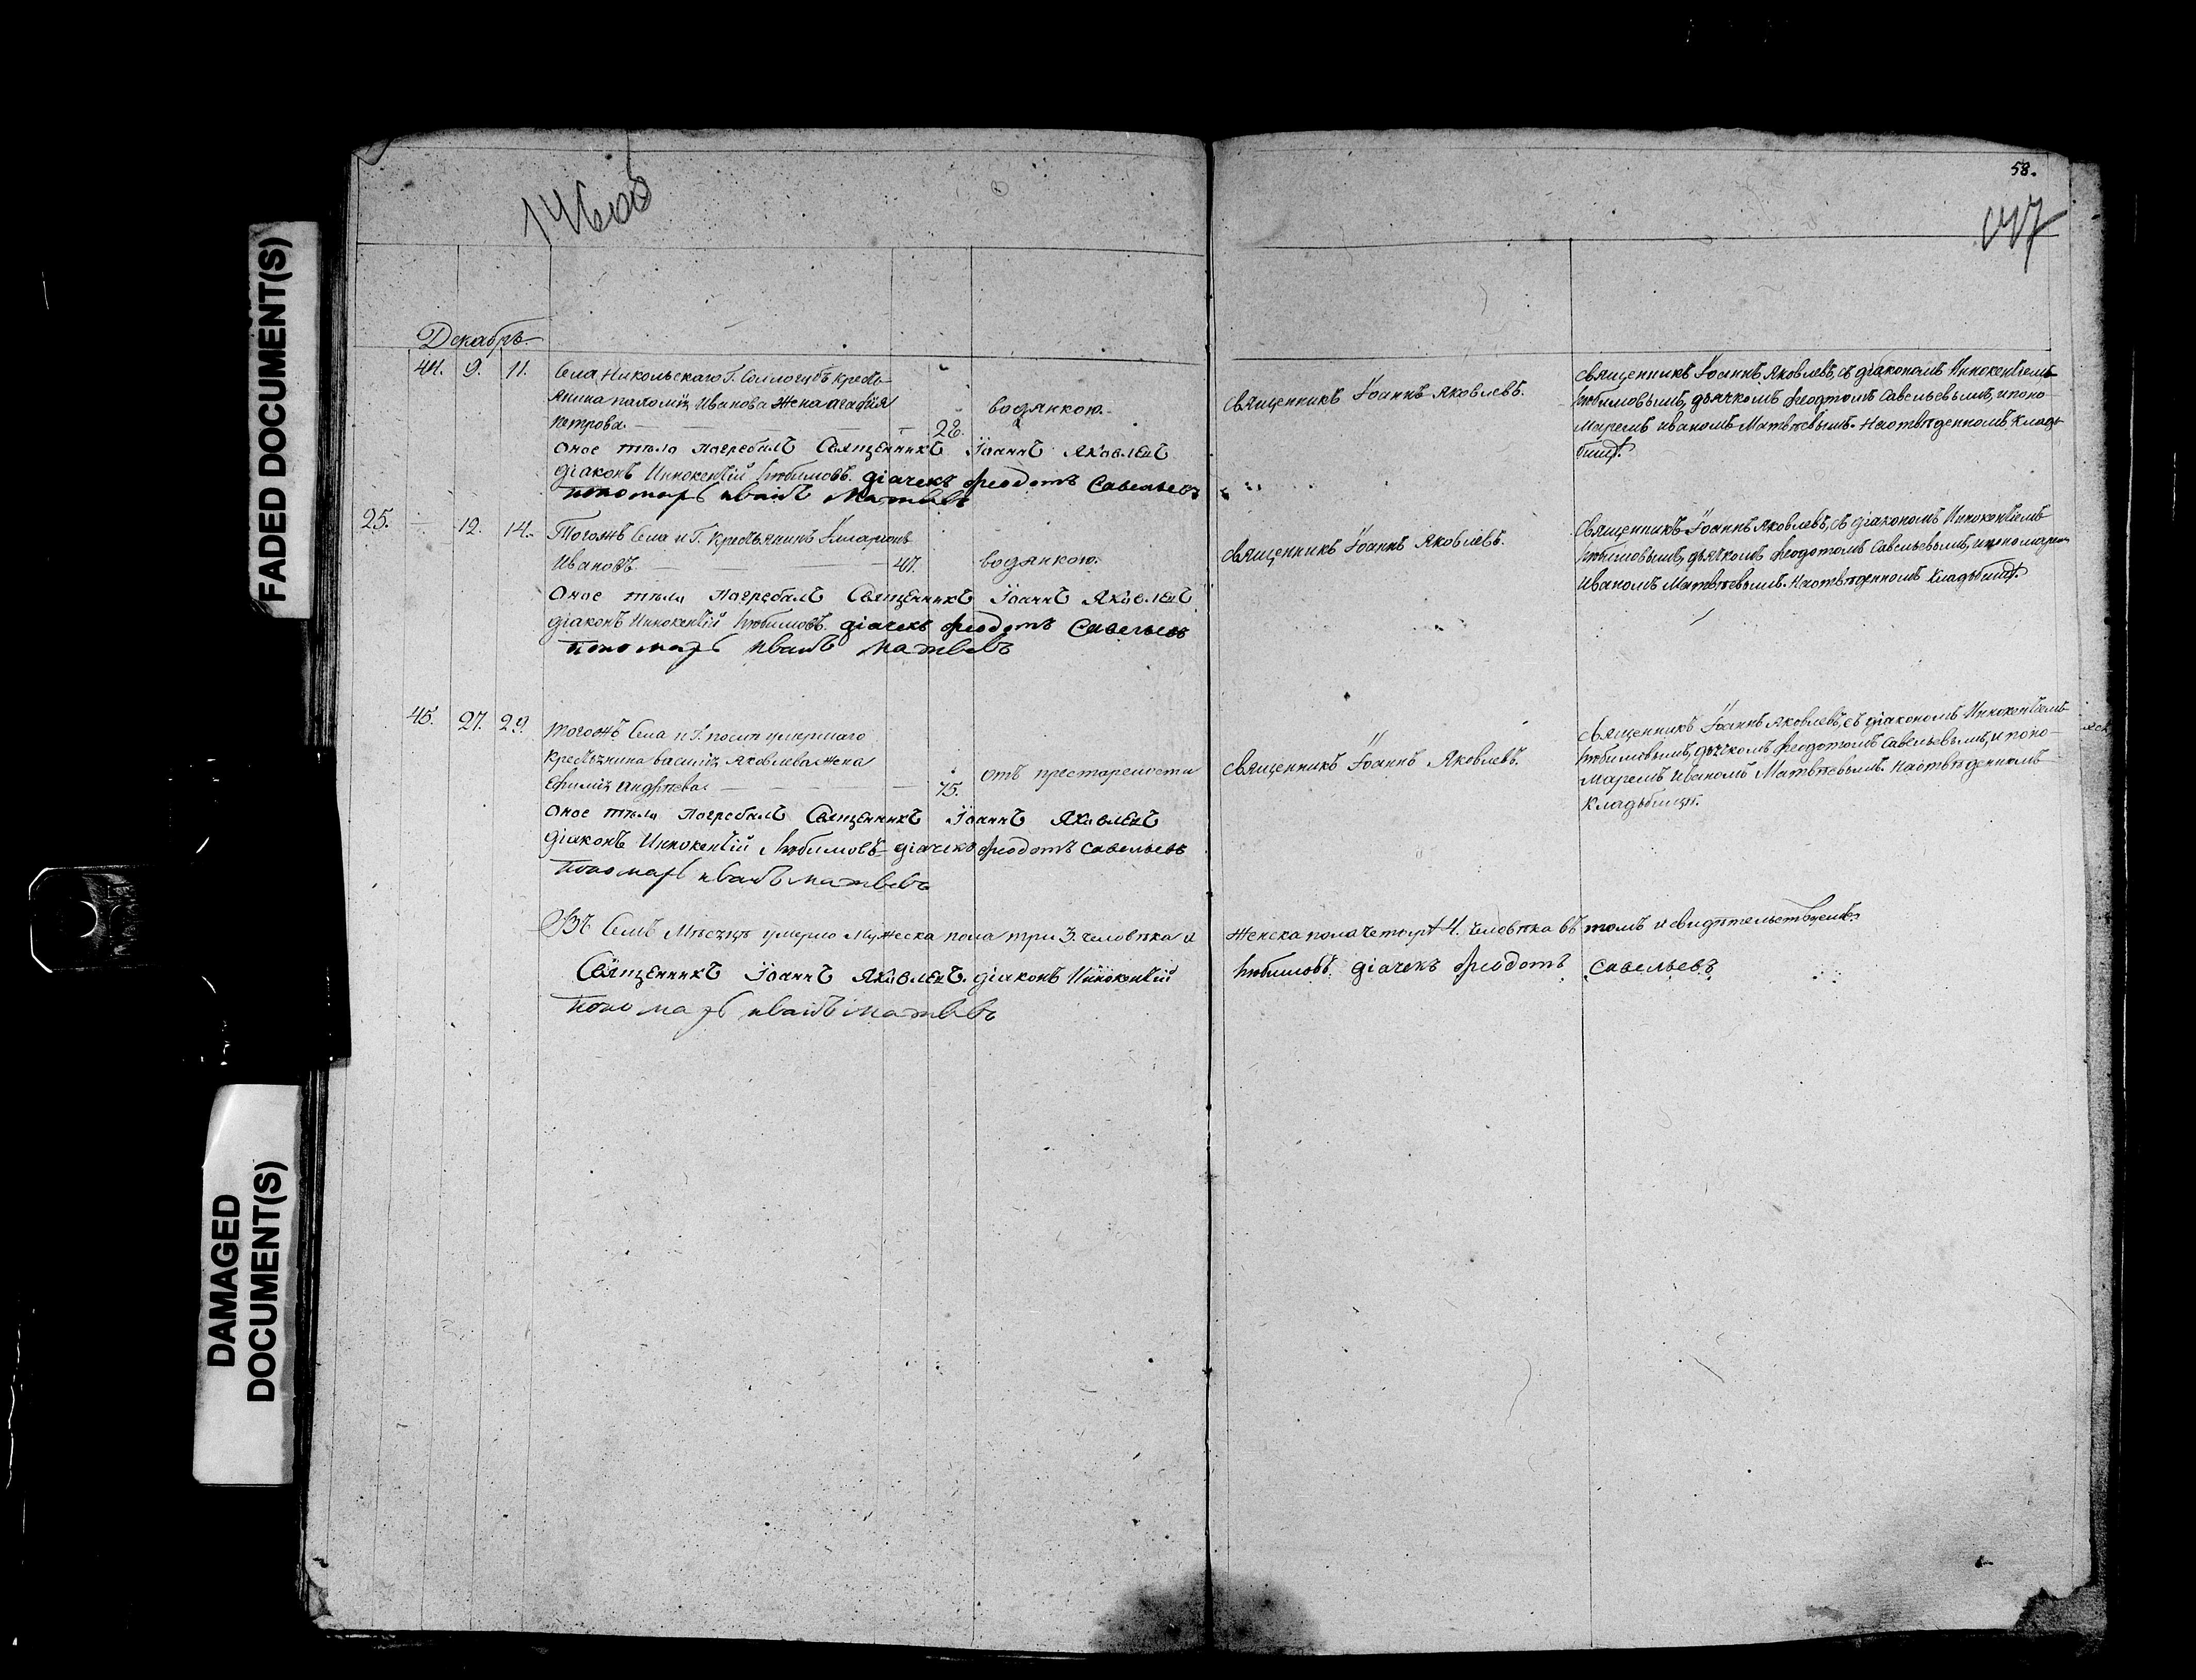 FADED DOCUMENT(S)
DAMAGED
DOCUMENT(S)
146об
58.
Декабрь.
44. 9. 11. Села Никольскаго Г. Соллогубъ кресть-
янина Иванова жена агафия
Петрова 28. водянкою.
Оное тѣло погребалъ Священникъ Іоаннъ Яковлевъ
діаконъ Иннокентій Любимовъ. діачекъ феодотъ Савельевъ
пономарь иванъ Матвѣевъ
25. 12. 14. Тогожъ Села и Г. Крестьянинъ Иларионъ
Ивановъ 47. водянкою.
Оное тѣло погребалъ Священникъ Іоаннъ Яковлевъ
діаконъ Иннокентій Любимовъ. діачекъ феодотъ Савельевъ
пономарь иванъ матвѣевъ
45. 27. 29. Тогожъ Села и Г. послѣ умершаго
крестьянина василия Яковлева жена
Ефимия андрѣева 75. отъ престарелости
Оное тѣло погребалъ Священникъ Іоаннъ Яковлевъ
діаконъ Иннокентій Любимовъ діачекъ феодотъ савельевъ
пономарь иванъ матвѣевъ
Въ Семъ Мѣсяцѣ умерло Мужеска пола три 3. человѣка и
Священникъ Іоаннъ Яковлевъ. діаконъ Иннокентій
пономарь иванъ матвѣевъ
Священникъ Іоаннъ Яковлевъ.
Священникъ Іоаннъ Яковлевъ, съ діакономъ Иннокентіемъ
Любимовымъ, дьячкомъ феодотомъ Савельевымъ, и поно-
маремъ иваномъ Матвѣевымъ. На отвѣденномъ Кладь-
бищѣ.
Священникъ Іоаннъ Яковлевъ.
Священникъ Іоаннъ Яковлевъ, съ діакономъ Иннокентіемъ
Любимовымъ, дьячкомъ феодотомъ Савельевымъ, и пономаремъ
иваномъ Матвѣевымъ. На отвѣденномъ Кладьбищѣ.
Священникъ Іоаннъ Яковлевъ.
Священникъ Іоаннъ Яковлевъ, съ діакономъ Иннокентіемъ
Любимовымъ, дьячкомъ феодотомъ Савельевымъ, и поно-
маремъ Иваномъ Матвѣевымъ. На отвѣденномъ
Кладьбищѣ.
женска пола четыре 4. человѣка въ томъ и свидѣтельствуемъ.
Любимовъ. діачекъ феодотъ Савельевъ